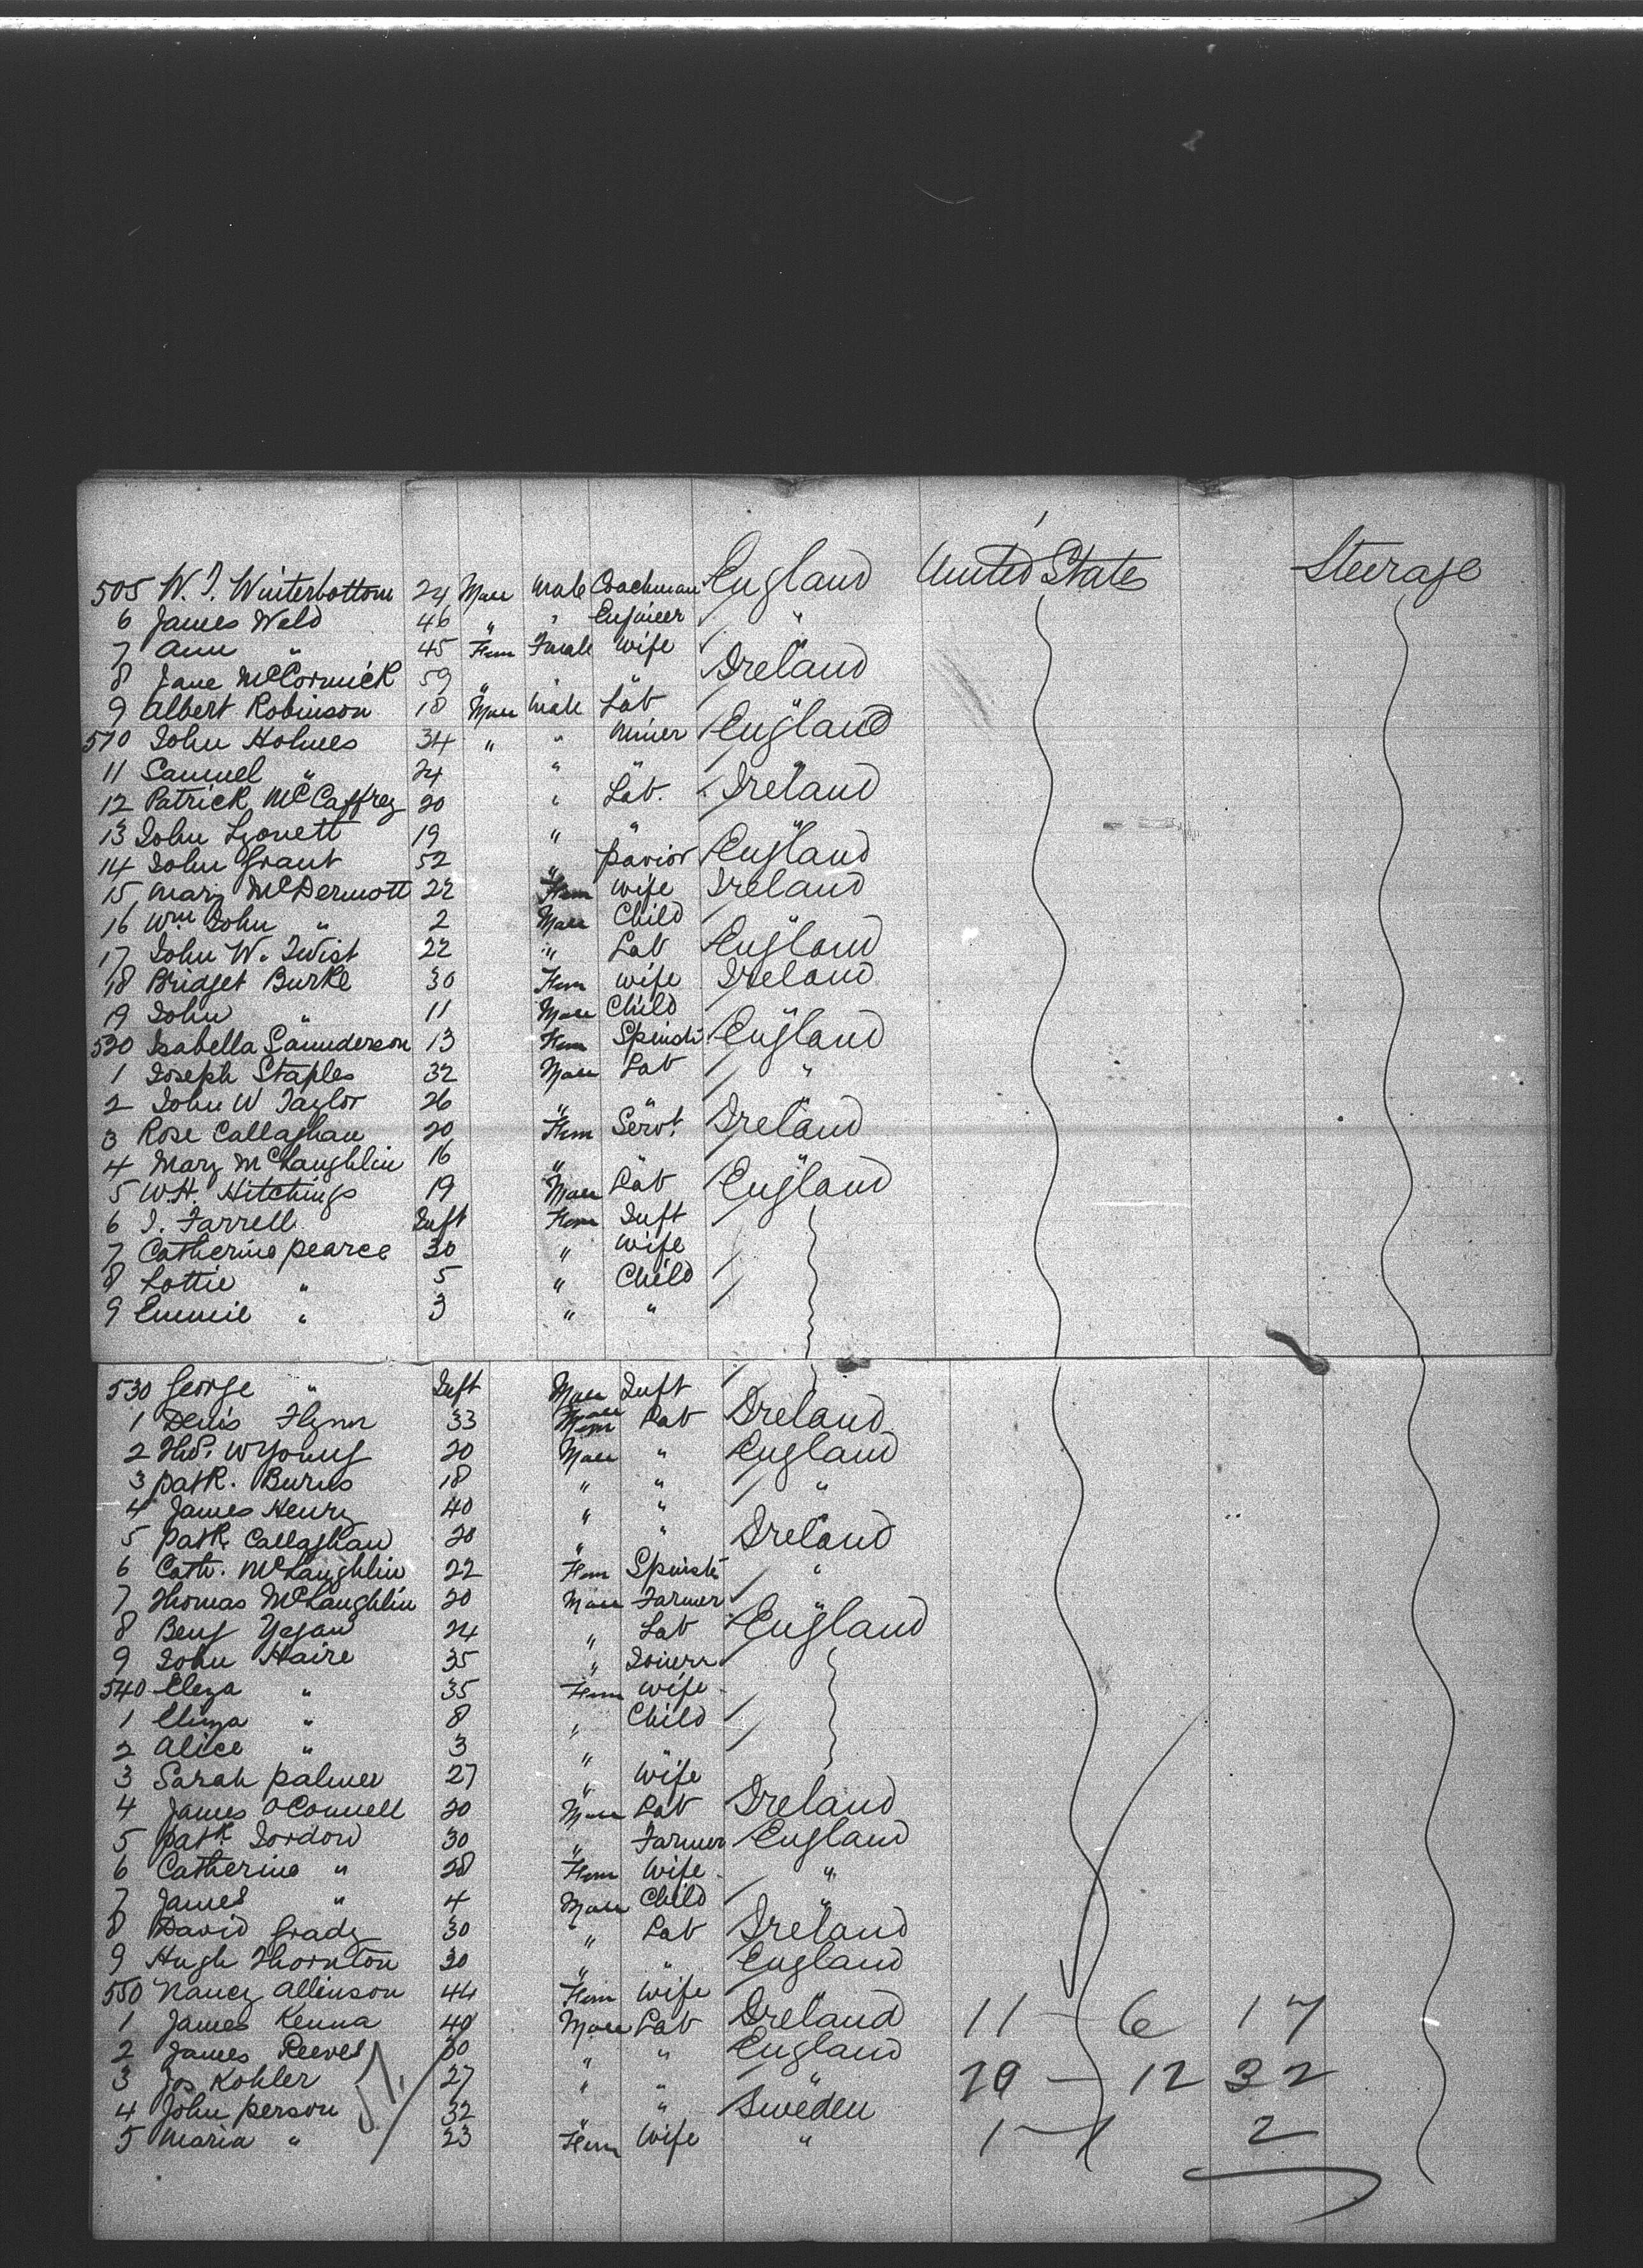 505 W. J. Winterbottom 24 Male Male Coachman England United States Steerage
6 James Weld 46 " " Engineer "
7 Ann " 45 Fem Female Wife "
8 Jane McCormick 59 " " " Ireland
9 Albert Robinson 18 Male Male Lab "
510 John Holmes 34 " " Miner England
11 Samuel " 24 " " "
12 Patrick McCaffrey 20 " Lab. Ireland
13 John Lyonett 19 " " "
14 John Grant 52 " pavior England
15 Mary McDermott 22 Fem Wife Ireland
16 Wm John " 2 Male Child "
17 John W. Twist 22 " Lab England
18 Bridget Burke 30 Fem Wife Ireland
19 John " 11 Male Child "
520 Isabella Saunderson 13 Fem Spinstr England
1 Joseph Staples 32 Male Lab "
2 John W Taylor 26 " " "
3 Rose Callaghan 20 Fem Servt. Ireland
4 Mary McLaughlin 16 " " "
5 W.H. Hitchings 19 Male Lab England
6 J. Farrell Inft Fem Inft
7 Catherine pearce 30 " Wife
8 Lottie " 5 " Child
9 Emmie " 3 " "
530 George " Inft Male Inft
1 Denis Flynn 33 Male Lab Ireland
2 Thos. W Young 20 Male " England
3 patk. Burns 18 " " "
4 James Henry 40 " " "
5 patk Callaghan 20 " " Ireland
6 Cath. McLaughlin 22 Fem Spinstr "
7 Thomas McLaughlin 20 Male Farmer "
8 Benj Yegan 24 " Lab England
9 John Haire 35 " Joiner
540 Eliza " 35 Fem Wife
1 Eliza " 8 " Child
2 Alice " 3 " "
3 Sarah palmer 27 " Wife
4 James OConnell 20 Male Lab Ireland
5 patk Jordon 30 " Farmer England
6 Catherine " 28 Fem Wife "
7 James " 4 Male Child "
8 David Grady 30 " Lab Ireland
9 Hugh Thornton 30 " " England
550 Nancy Allinson 44 Fem Wife "
1 James Kenna 40 Male Lab Ireland 11 - 6 17
2 James Reeves 30 " " England
3 Jos Kohler 27 " " " 20 - 12 32
4 John person 32 " " Sweden
5 Maria " 23 Fem Wife " 1 - 1 2